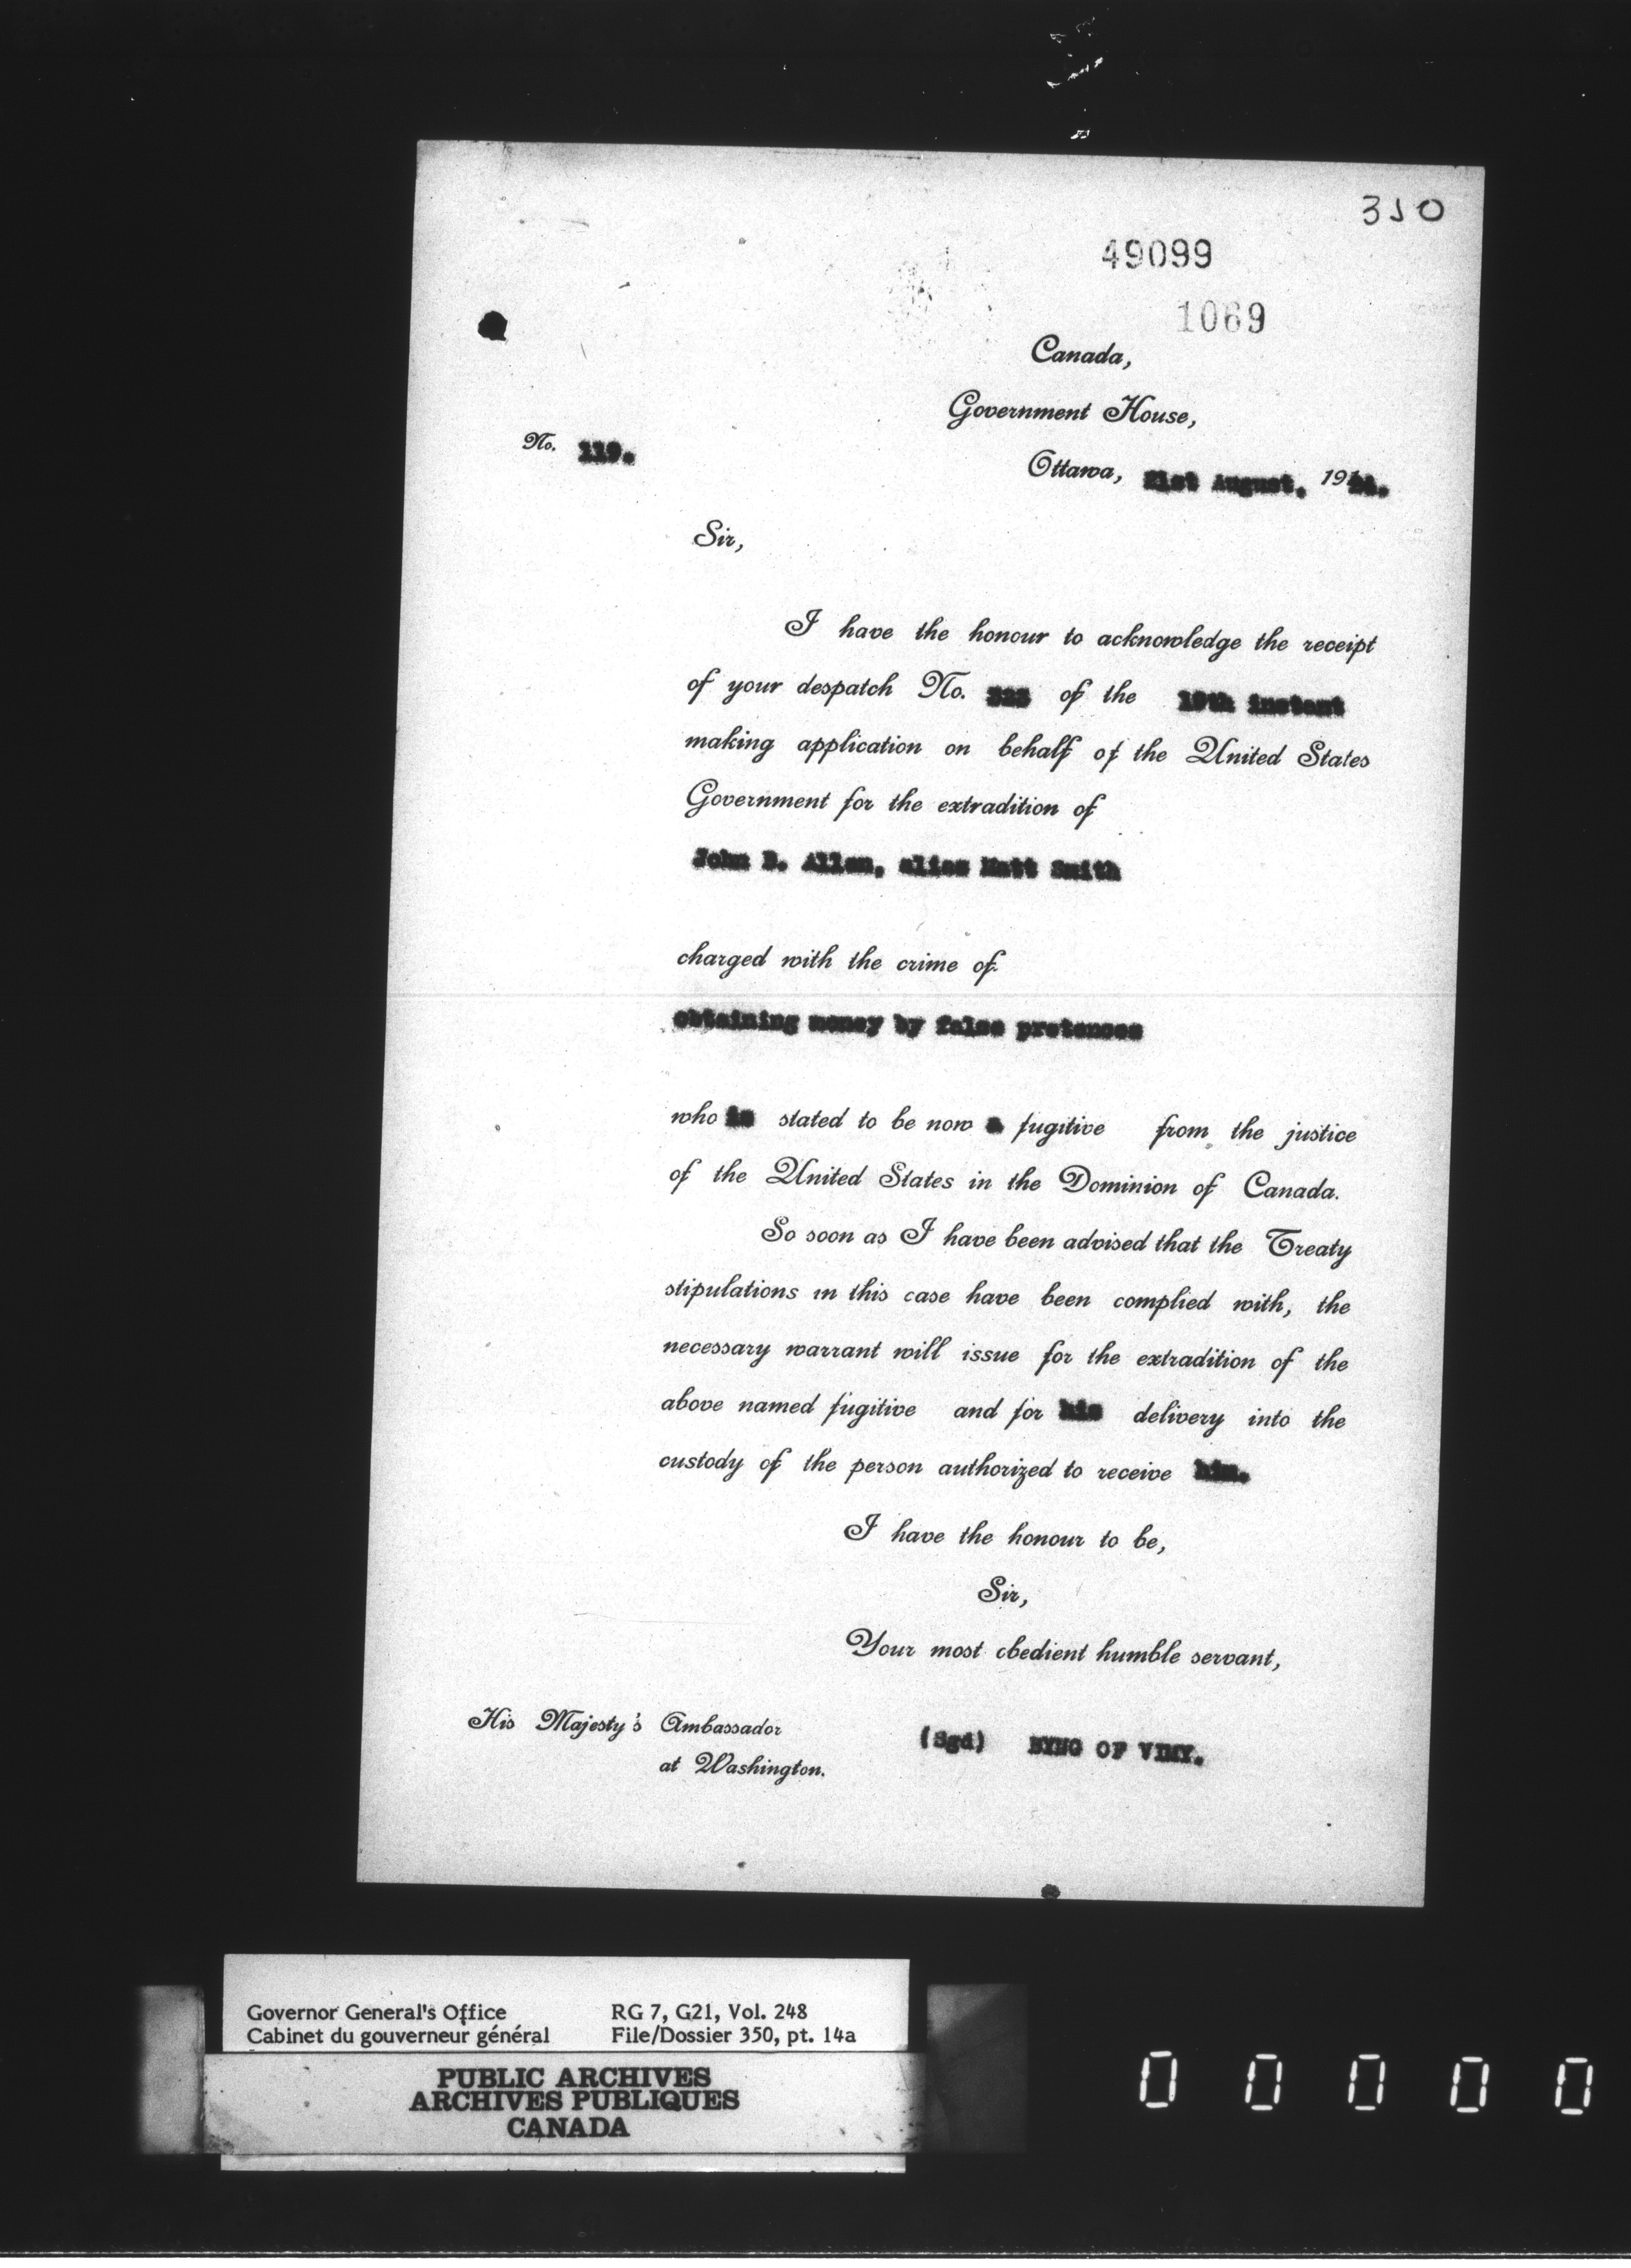 350
49099
1069
Canada,
Government House,
No. 119.
Ottawa, 21st August, 19
Sir,
I have the honour to acknowledge the receipt
of your despatch No. of the 19th instant
making application on behalf of the United States
Government for the extradition of
John B. Allen, alias Matt Smith
charged with the crime of
obtaining money by false pretences
who is stated to be now a fugitive from the justice
of the United States in the Dominion of Canada.
So soon as I have been advised that the Treaty
stipulations in this case have been complied with, the
necessary warrant will issue for the extradition of the
above named fugitive and for his delivery into the
custody of the person authorized to receive him.
I have the honour to be,
Sir,
Your most obedient humble servant,
His Majesty's Ambassador
at Washington.
(Sgd) BYNG OF VIMY.
Governor General's Office
Cabinet du gouverneur général
RG 7, G21, Vol. 248
File/Dossier 350, pt. 14a
PUBLIC ARCHIVES
ARCHIVES PUBLIQUES
CANADA
0 0 0 0 0